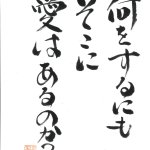 何をするにも
そこに
愛はあるのか?